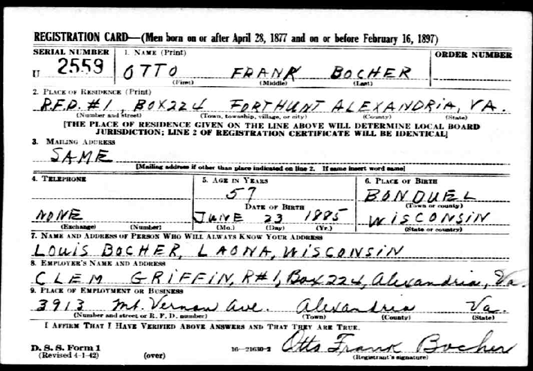 REGISTRATION CARD—(Men born on or after April 28, 1877 and on or before February 16, 1897)
SERIAL NUMBER
1. NAME (Print)
ORDER NUMBER
U 2559
OTTO FRANK BOCHER
(First) (Middle) (Last)
2. PLACE OF RESIDENCE (Print)
R.F.D. #1, BOX 224 FORT HUNT ALEXANDRIA, VA.
(Number and street) (Town, township, village, or city) (County) (State)
[THE PLACE OF RESIDENCE GIVEN ON THE LINE ABOVE WILL DETERMINE LOCAL BOARD
JURISDICTION; LINE 2 OF REGISTRATION CERTIFICATE WILL BE IDENTICAL]
3. MAILING ADDRESS
SAME
[Mailing address if other than place indicated on line 2. If same insert word same]
4. TELEPHONE
5. AGE IN YEARS
6. PLACE OF BIRTH
57
BONDUEL
DATE OF BIRTH
(Town or county)
NONE
JUNE 23 1885
WISCONSIN
(Exchange) (Number)
(Mo.) (Day) (Yr.)
(State or country)
7. NAME AND ADDRESS OF PERSON WHO WILL ALWAYS KNOW YOUR ADDRESS
LOUIS BOCHER, LAONA, WISCONSIN
8. EMPLOYER'S NAME AND ADDRESS
CLEM GRIFFIN, R#1, Box 224, Alexandria, Va.
9. PLACE OF EMPLOYMENT OR BUSINESS
3913 Mt. Vernon Ave. Alexandria Va.
(Number and street or R. F. D. number) (Town) (County) (State)
I AFFIRM THAT I HAVE VERIFIED ABOVE ANSWERS AND THAT THEY ARE TRUE.
D. S. S. Form 1
(Revised 4-1-42) (over) 16—21630-2
Otto Frank Bocher
(Registrant's signature)